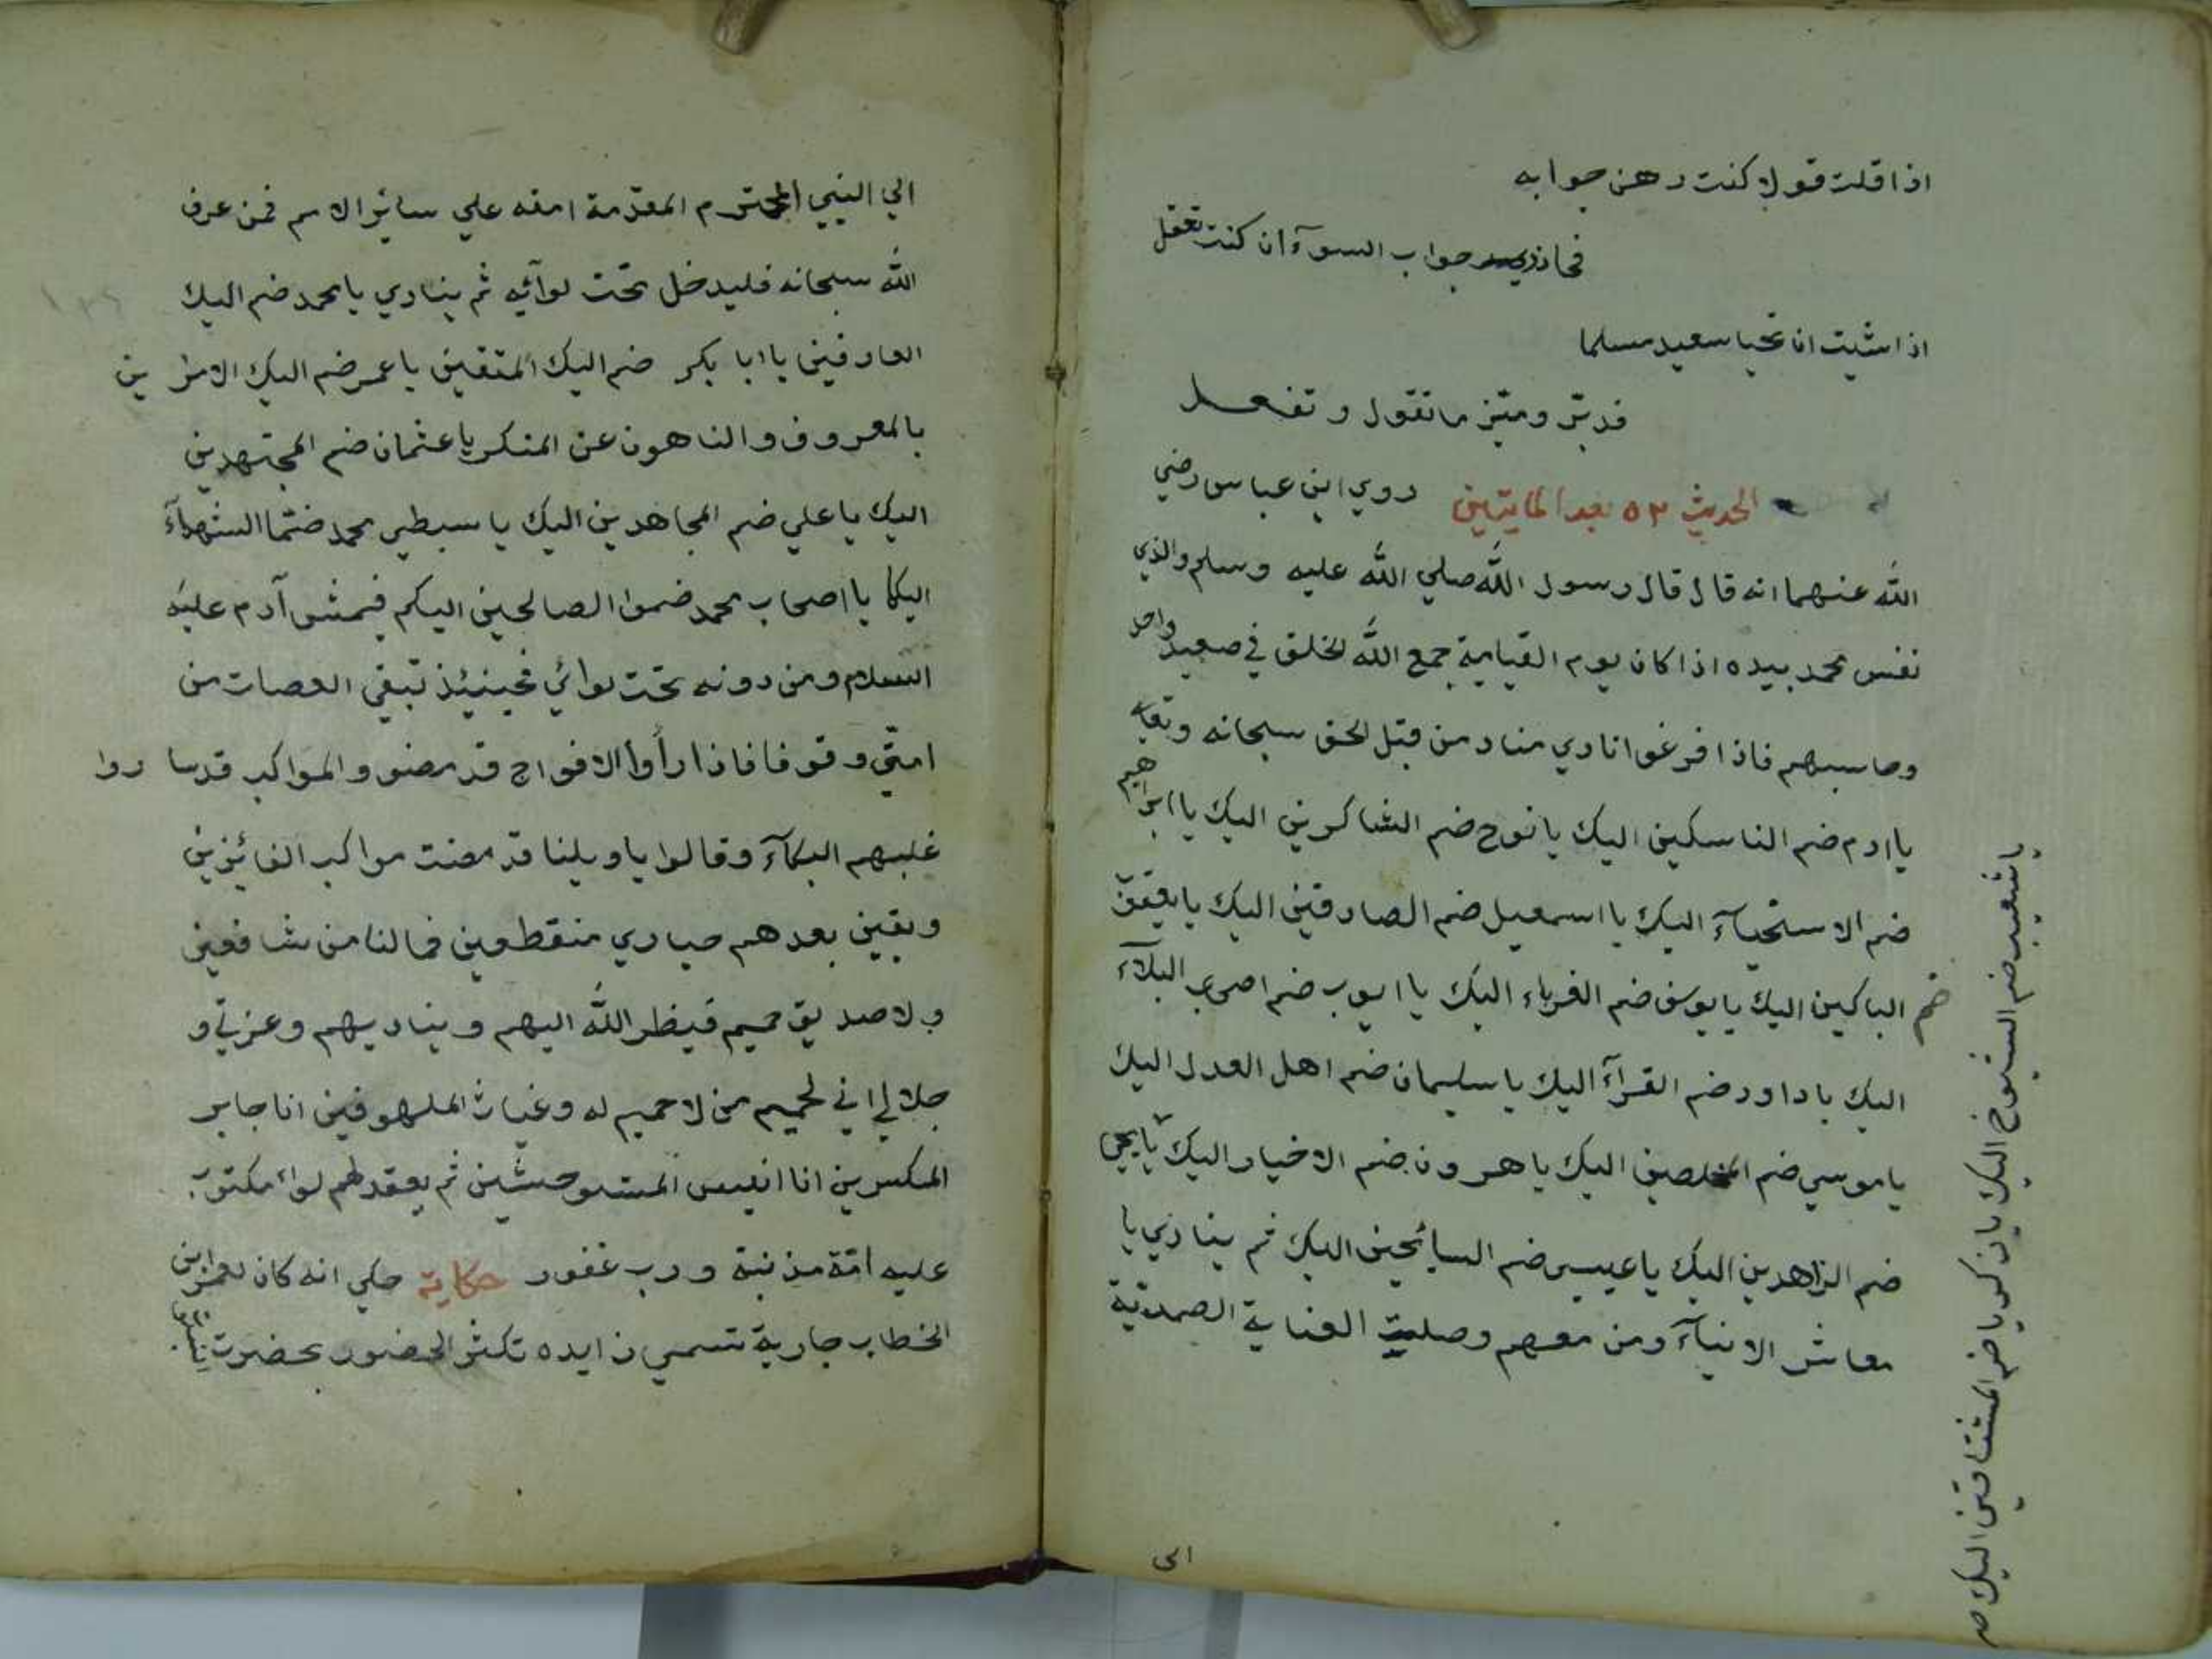 اذا قلت قولا كنت رهن جوابه
فحاذر جواب السوآ ان كنت تعقل
اذا شيت ان تحيا سعيد مسلما
فدبّر وميّز ما تقول و تفعل
الحديث ٥٣ بعد المايتين روي ابن عباس رضي
الله عنهما انه قال قال رسول الله صلي الله عليه وسلم والذي
نفس محمد بيده اذا كان يوم القيامة جمع الله الخلق في صعيد واحد
وحاسبهم فاذا فرغوا نادي مناد من قبل الحق سبحانه وتعا
يا ادم ضم الناسكين اليك يا نوح ضم الشاكرين اليك يا ابراهيم
ضم الاستحيآء اليك يا اسمعيل ضم الصادقين اليك يا يعقوب
ضم الباكين اليك يا يوسف ضم الغرباء اليك يا ايوب ضم اصحاب البلآء
اليك يا داود ضم القرآء اليك يا سليمان ضم اهل العدل اليك
يا موسي ضم المخلصين اليك يا هرون ضم الاخيار اليك يا يحيى
ضم الزاهدين اليك يا عيسى ضم السائحين اليك ثم ينادي يا
معاشر الانبيآء ومن معهم وصلت العناية الصمدية
الى
يا شعيب ضم الشيوخ اليك يا زكريا ضم المشتاقين اليك صح
الي النبي المحترم المقدّمة امته علي سائر الامم فمن عرف
الله سبحانه فليدخل تحت لوآئه ثم ينادي يا محمد ضم اليك
العارفين يا ابا بكر ضم اليك المتقين يا عمر ضم اليك الامرين
بالمعروف والناهون عن المنكر يا عثمان ضم المجتهدين
اليك يا علي ضم المجاهدين اليك يا سبطي محمد ضمّا الشهدآء
اليكما يا اصحاب محمد ضموا الصالحين اليكم فيمشو آدم عليه
السلام ومن دونه تحت لوائي فحينئذ تبقي العصات من
امتي وقوفا فاذا رأوا الافواج قد مضو والمواكب قد ساروا
غلبهم البكآء وقالوا يا ويلنا قد مضت مواكب الفائزين
وبقين بعدهم حياري منقطعين فما لنا من شافعين
ولا صديق حميم فينظر الله اليهم ويناديهم وعزتي و
جلالي اني لحميم من لا حميم له وغياث الملهوفين انا جابر
المكسرين انا انيس المستوحشين ثم يعقد لهم لواء مكتوب
عليه امّة مذنبة ورب غفور حكاية حكي انه كان لعمر ابن
الخطاب جارية تسمي زايده تكثر الحضور بحضرت